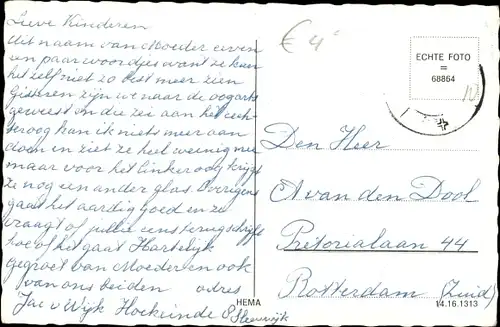 Lieve Kinderen
Uit naam van Moeder even
een paar woordjes want ze kan
het zelf niet zo best meer zien
Gisteren zijn we naar de oogarts
geweest en die zei aan het rech-
teroog kan ik niets meer aan
doen en ziet ze heel weinig mee
maar voor het linkeroog krijgt
ze nog een ander glas. Overigens
gaat het aardig goed en ze
vraagt of jullie eens terugschrijft
hoe of het gaat Hartelijk
gegroet van Moeder en ook
van ons beiden adres
Jac v Wijk Hoekeinde Sleeuwijk
€ 4
ECHTE FOTO
=
68864
10
Den Heer
A van den Dool
Pretorialaan 44
Rotterdam (Zuid)
HEMA
14.16.1313